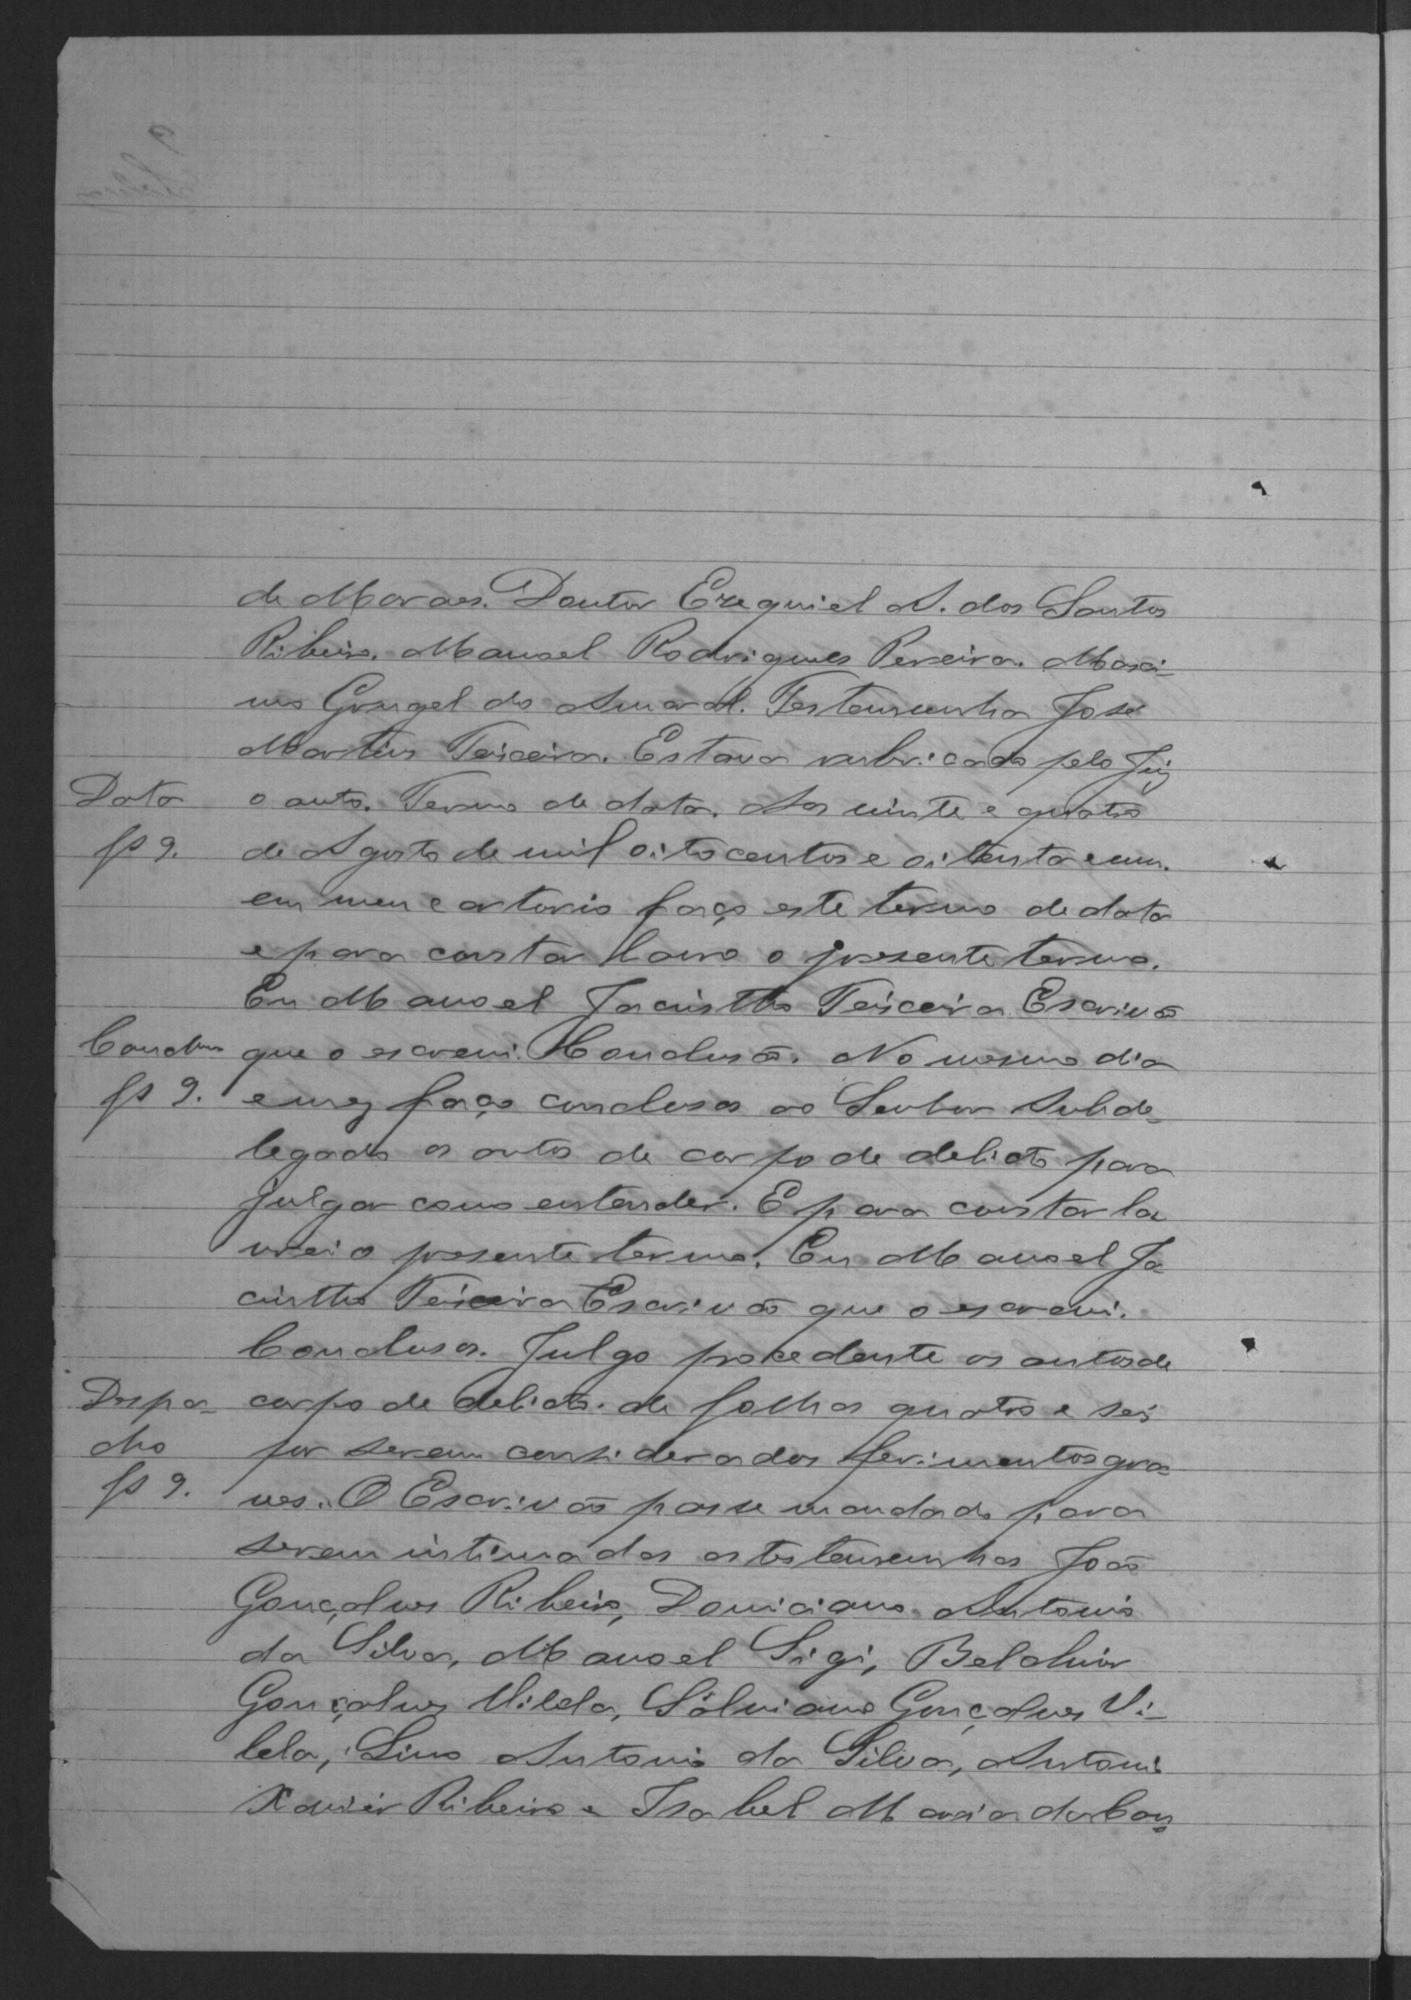 de Moraes. Doutor Ezequiel A. dos Santos
Ribeiro. Manoel Rodrigues Pereira. Maxi-
mo Gurgel do Amaral. Testemunha José
Martins Teixeira. Estava rubricado pelo Juiz
Data
o auto. Termo de data. Aos vinte e quatro
fs 9.
de Agosto de mil oito centos e oitenta e um.
em meu cartorio faço este termo de data
e para constar lavro o presente termo.
Eu Manoel Jacintho Teixeira Escrivão
Conclusão
que o escrevi. Conclusão. No mesmo dia
fs 9.
e mez faço conclusos ao Senhor Subde-
legado os autos de corpo de delicto para
julgar como entender. E para constar la
vrei o presente termo. Eu Manoel Ja-
cintho Teixeira Escrivão que o escrevi.
Conclusos. Julgo procedente os autos de
Despa-
corpo de delicto de folhas quatro e seis
cho
por serem considerados ferimentos gra-
fs 9.
ves. O Escrivão passe mandado para
serem intimadas as testemunhas João
Gonçalves Ribeiro, Domiciano Antonio
da Silva, Manoel Gigi, Belchior
Gonçalves Vilela, Salviano Gonçalves Vi-
lela, Lino Antonio da Silva, Antonio
Xavier Ribeiro e Isabel Maria da Con